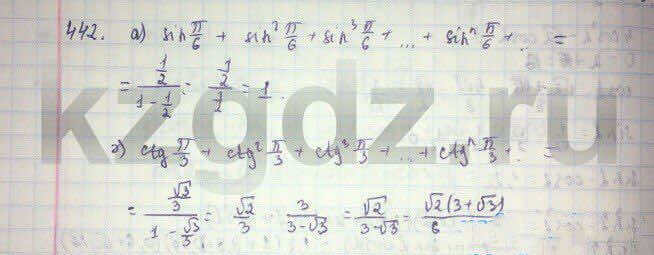 442. а) sin π/6 + sin² π/6 + sin³ π/6 + ... + sinⁿ π/6 + .. =
= (1/2)/(1 - 1/2) = (1/2)/(1/2) = 1.
г) ctg π/3 + ctg² π/3 + ctg³ π/3 + ... + ctgⁿ π/3 + . =
= (√3/3)/(1 - √3/3) = √2/3 · 3/(3-√3) = √2/(3-√3) = √2(3+√3)/6
kzgdz.ru